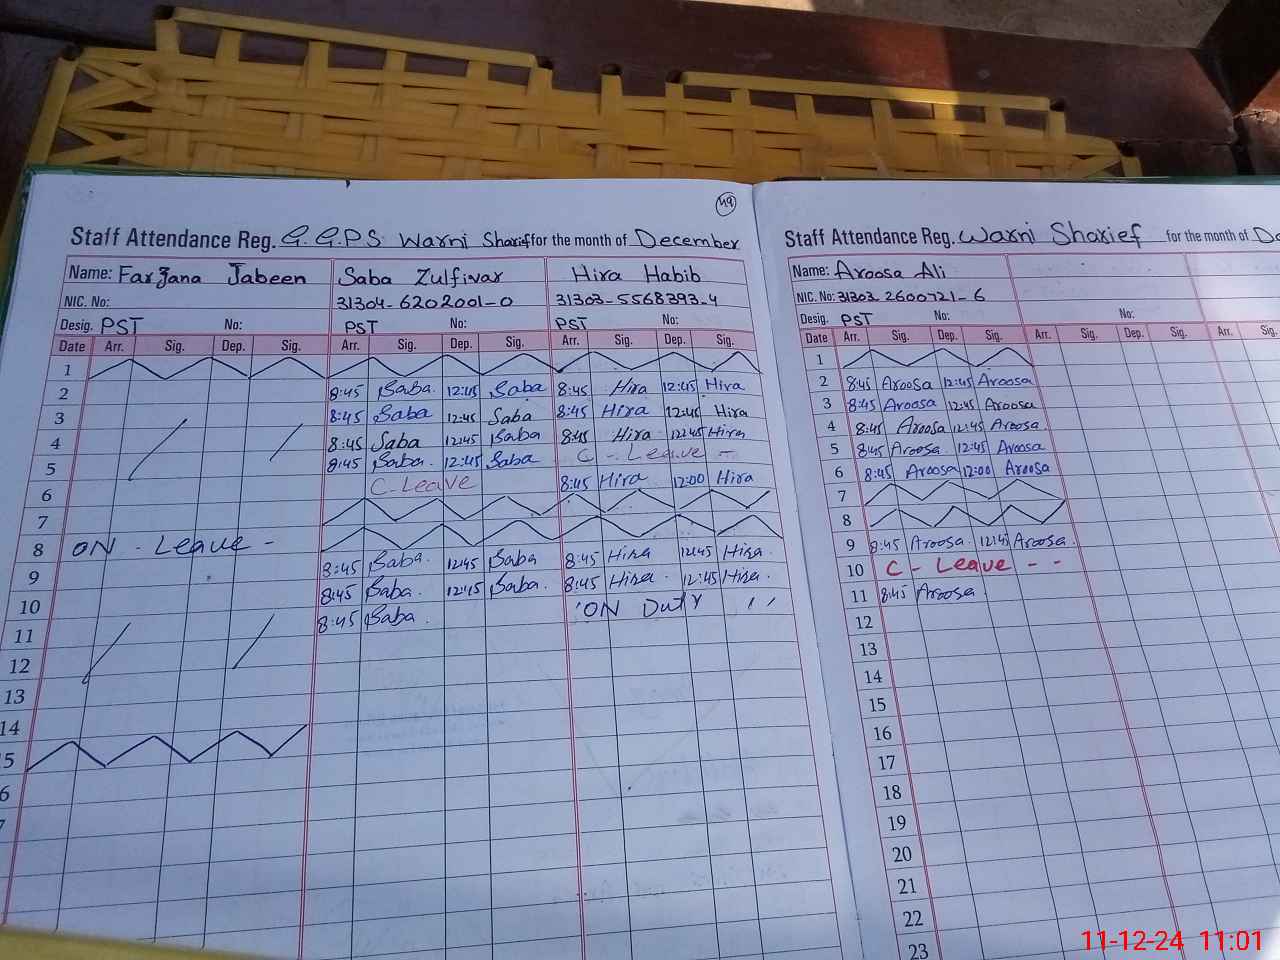 49
Staff Attendance Reg. G.G.P.S Warni Sharif for the month of December
Name: Farzana Jabeen Saba Zulfiqar Hira Habib
NIC. No: 31304-6202001-0 31303-5568393-4
Desig. PST No: PST No: PST No:
Date Arr. Sig. Dep. Sig. Arr. Sig. Dep. Sig. Arr. Sig. Dep. Sig.
1
2 8:45 Saba. 12:45 Saba 8:45 Hira 12:45 Hira
3 8:45 Saba 12:45 Saba 8:45 Hira 12:45 Hira
4 8:45 Saba 12:45 Saba 8:45 Hira 12:45 Hira
5 8:45 Saba. 12:45 Saba C - Leave -
6 C-Leave 8:45 Hira 12:00 Hira
7
8 ON - Leave -
9 8:45 Saba. 12:45 Saba 8:45 Hira 12:45 Hira.
10 8:45 Saba. 12:45 Saba. 8:45 Hira. 12:45 Hira.
11 8:45 Saba. ON Duty
12
13
14
5
6
7
Staff Attendance Reg. Warni Sharief for the month of De
Name: Aroosa Ali
NIC. No: 31303 2600721-6
Desig. PST No: No:
Date Arr. Sig. Dep. Sig. Arr. Sig. Dep. Sig. Arr. Sig.
1
2 8:45 Aroosa 12:45 Aroosa
3 8:45 Aroosa 12:45 Aroosa
4 8:45 Aroosa 12:45 Aroosa
5 8:45 Aroosa. 12:45 Aroosa
6 8:45 Aroosa 12:00 Aroosa
7
8
9 8:45 Aroosa. 12:45 Aroosa.
10 C - Leave - -
11 8:45 Aroosa
12
13
14
15
16
17
18
19
20
21
22
23
11-12-24 11:01